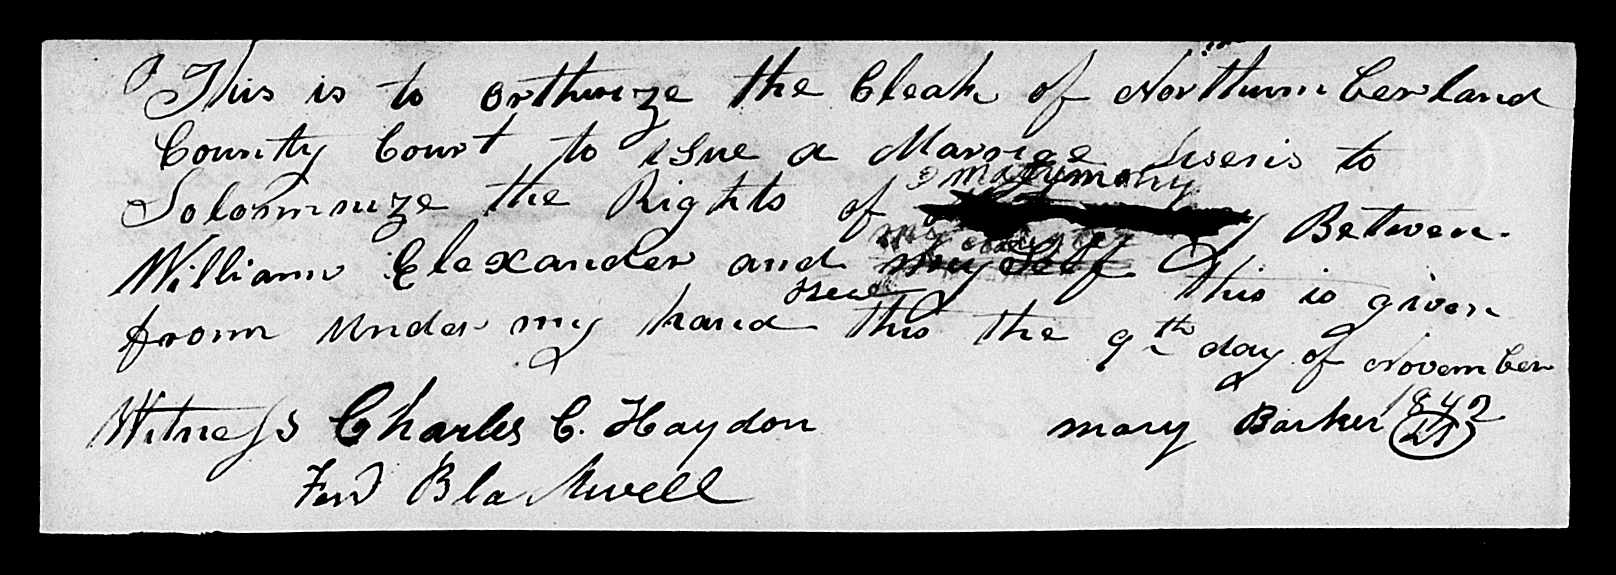 This is to orthurize the Cleak of Northumberland
County Court to isue a Marrige Lisenis to
Solommize the Rights of matrimony Between
William Elexander and my Self this is given
from under my hand this the 9th day of November
1842
Witness Charles C. Haydon mary Barker
Ferd Blackwell